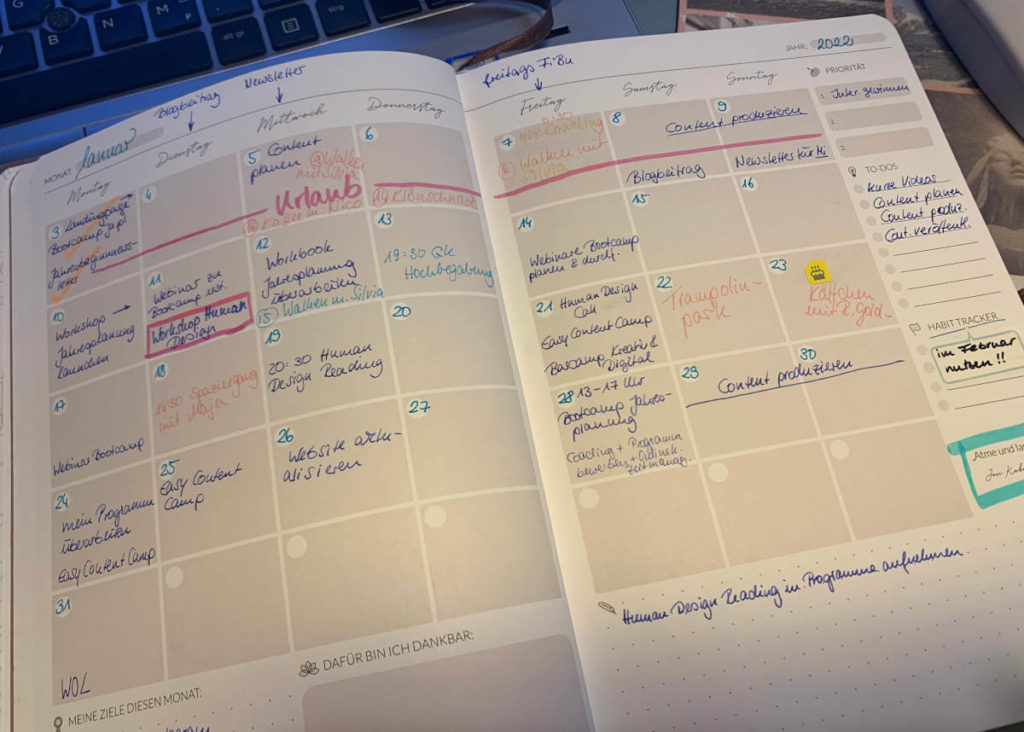 MONAT: Januar
Blogbeitrag
Newsletter
Montag
Dienstag
Mittwoch
Donnerstag
3 Landingpage
Bootcamp Japl
Jahresbeginn
4
5 Content
planen
@Walken
mit Silvia
Urlaub
Kaffee m. Nico
6
19 Klönschnack
10
Workshop →
Jahresplanung
launchen
11
Webinar zu
Bootcamp
Workshop Human
Design
12
Workbook
Jahresplanung
überarbeiten
15 Walken m. Silvia
13
19:30 Qk
Hochbegabung
17
Webinar Bootcamp
18
14:30 Spaziergang
mit Maja
19
20:30 Human
Design Reading
20
24
mein Programm
überarbeiten
Easy Content Camp
25
Easy Content
Camp
26
Website aktu-
alisieren
27
31
WOL
MEINE ZIELE DIESEN MONAT:
DAFÜR BIN ICH DANKBAR:
freitags FiBu
JAHR: 2022
Freitag
Samstag
Sonntag
7
Walken mit
Silvia
8
9
Content produzieren
Blogbeitrag
Newsletter für Mi
14
Webinare Bootcamp
planen & durchf.
15
16
21 Human Design
Call
Easy Content Camp
Barcamp Kreativ &
Digital
22
Trampolin-
park
23
Käffchen
mit
28 13-17 Uhr
Bootcamp Jahres-
planung
Coaching + Programm
bewerben + Onlinek.
Zeitmanag.
29
30
Content produzieren
PRIORITÄT
1. Inter. gewinnen
2.
3.
TO-DOS
Kurze Videos
Content planen
Content produz.
Cont. veröffentl.
HABIT TRACKER
im Februar
nutzen!!
Atme und la
Jon Kab
Human Design Reading in Programme aufnehmen.